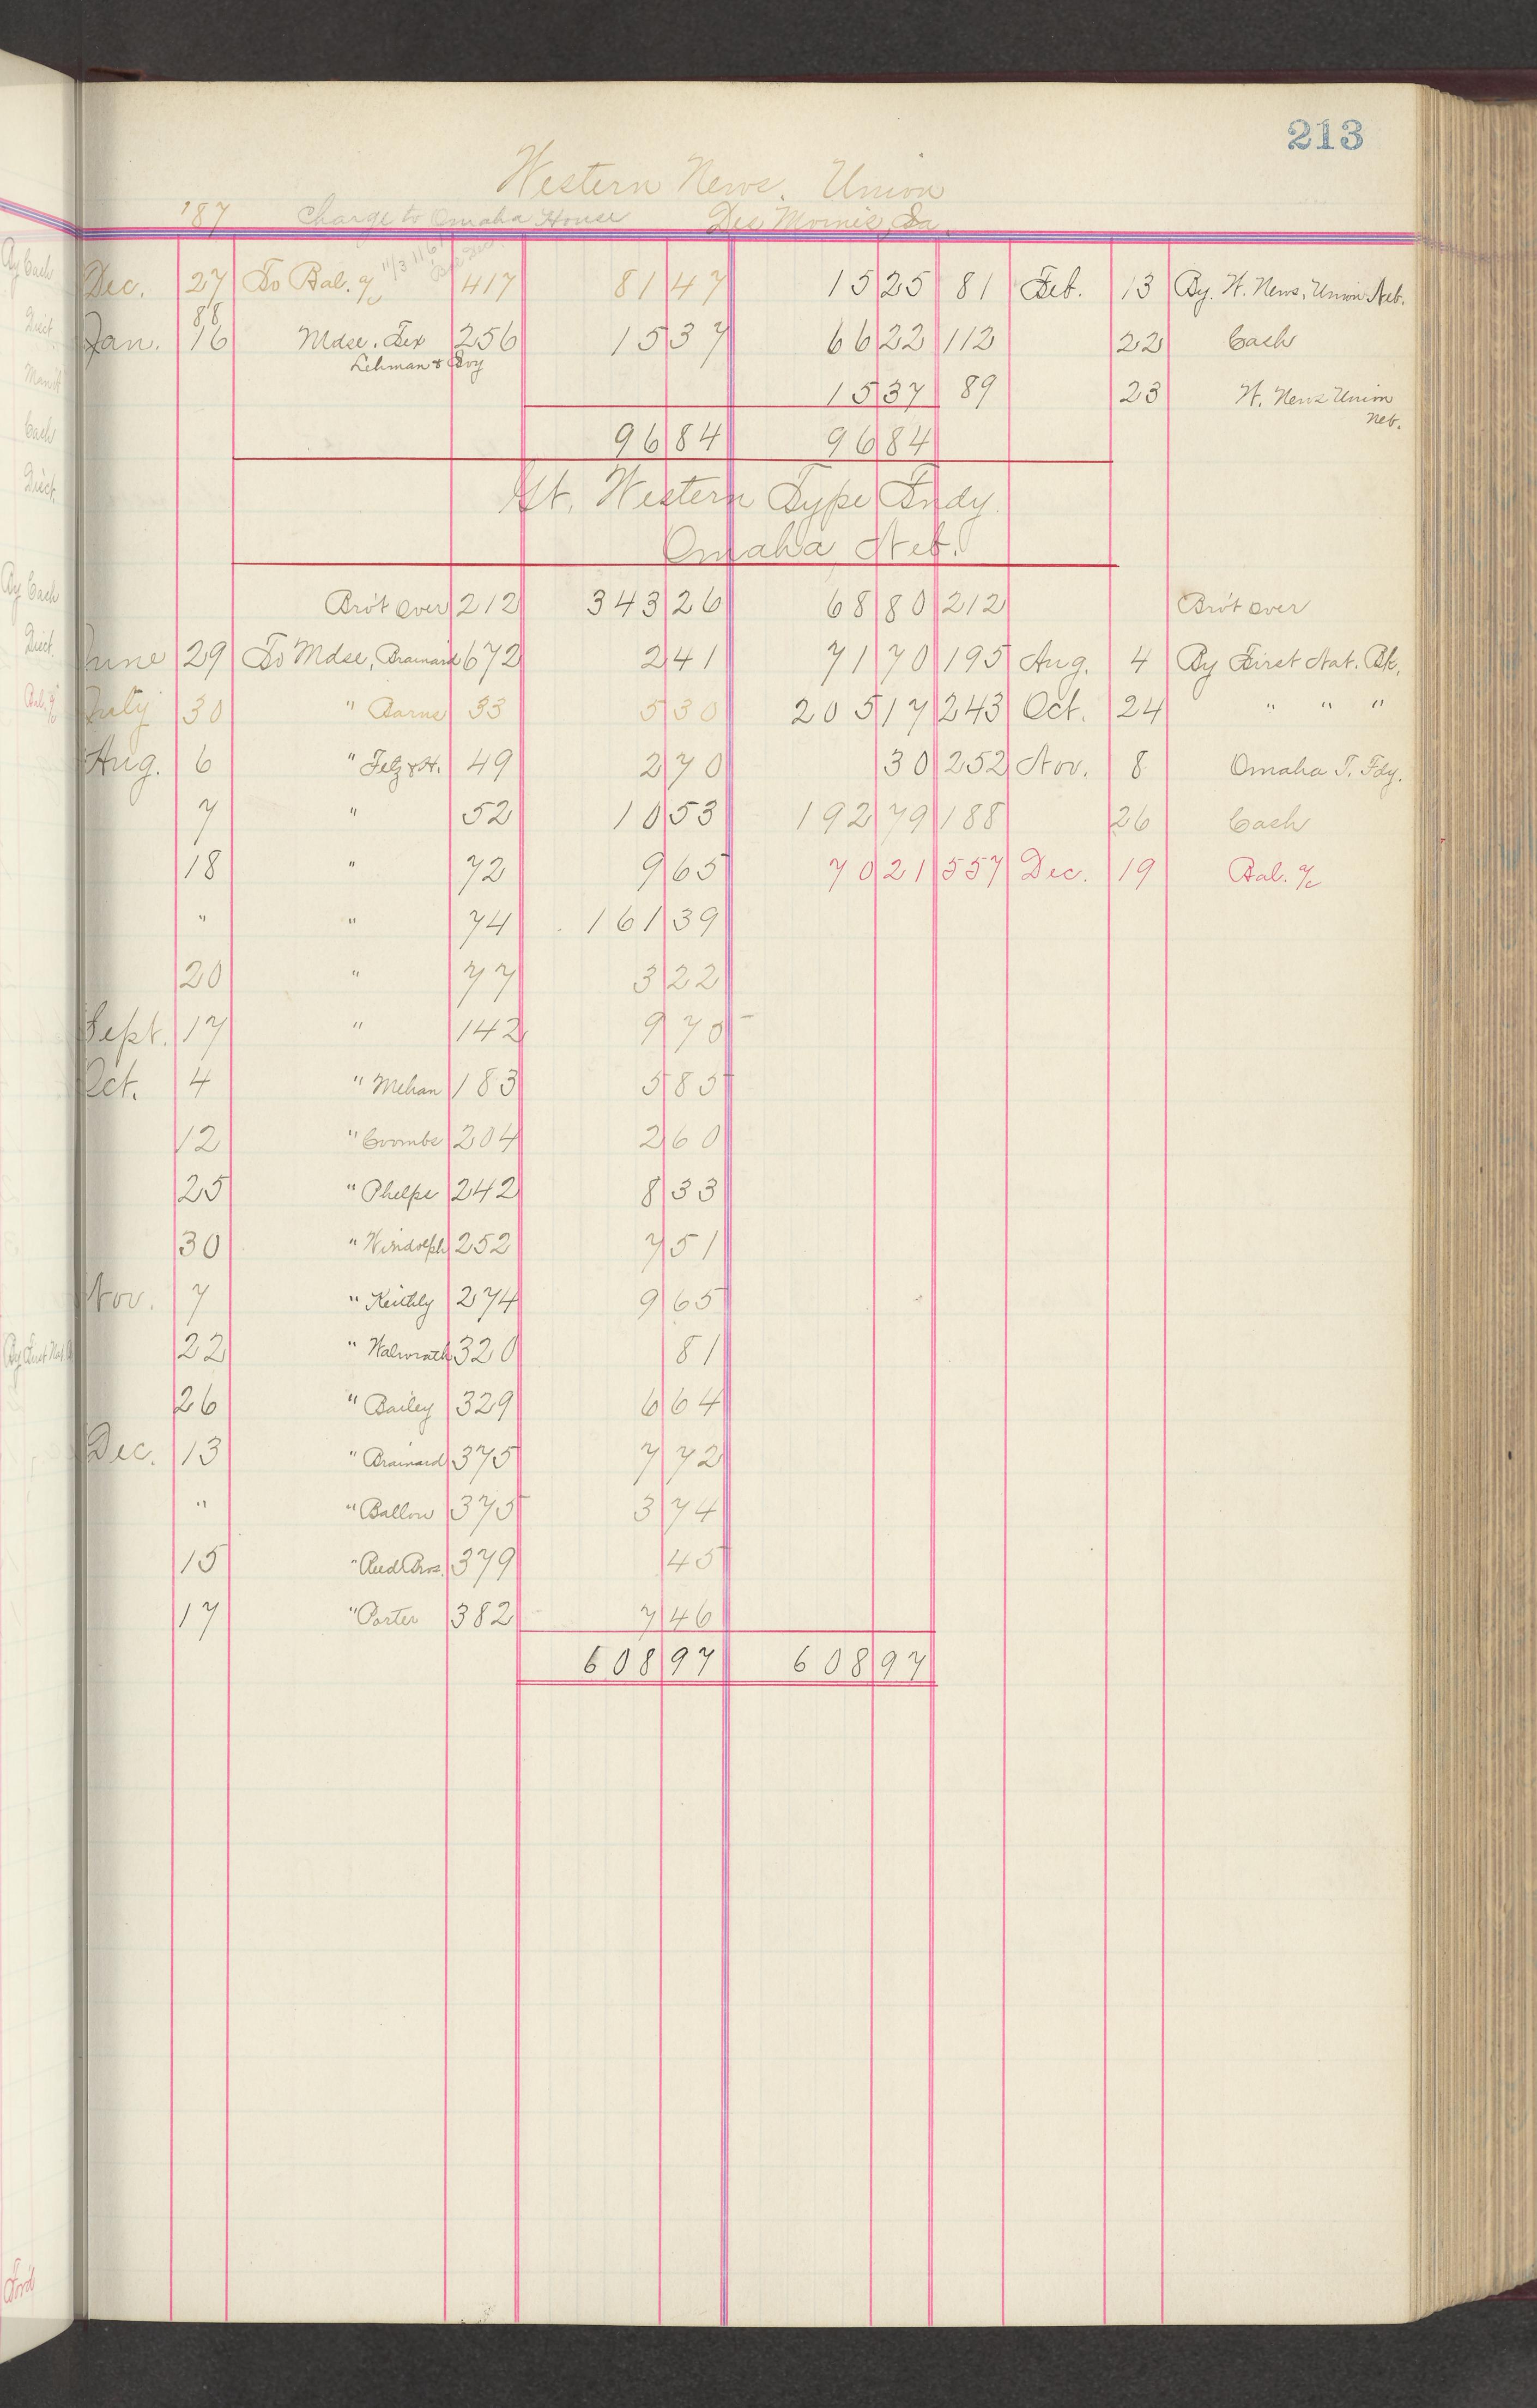 213
Western News. Union
'87 Charge to Omaha House Des Moines, Ia.
Dec. 27 To Bal. a/c 417 81 47 15 25 81 Feb. 13 By. W. News. Union Neb.
88
Jan. 16 Mdse. Lex 256 15 37 66 22 112 22 Cash
Lehman &
15 37 89 23 W. News Union
Neb.
96 84 96 84
Gt. Western Type Fndy
Omaha Neb.
Bro't over 212 343 26 68 80 212 Bro't over
June 29 To Mdse, Brainard 672 2 41 71 70 195 Aug. 4 By First Nat. Bk.
July 30 " Barns 33 5 30 205 17 243 Oct. 24 " " "
Aug. 6 " Felz & H. 49 2 70 30 252 Nov. 8 Omaha T. Fdy.
7 " 52 10 53 192 79 188 26 Cash
18 " 72 9 65 70 21 557 Dec. 19 Bal. a/c
" " 74 161 39
20 " 77 3 22
Sept. 17 " 142 9 70
Oct. 4 " Mehan 183 5 85
12 " Coombs 204 2 60
25 " Phelps 242 8 33
30 " Windolph 252 7 51
Nov. 7 " Keithly 274 9 65
22 " Walworath 320 81
26 " Bailey 329 6 64
Dec. 13 " Brainard 375 7 72
" " Ballow 375 3 74
15 " Reed Bros. 379 45
17 " Porter 382 7 46
608 97 608 97